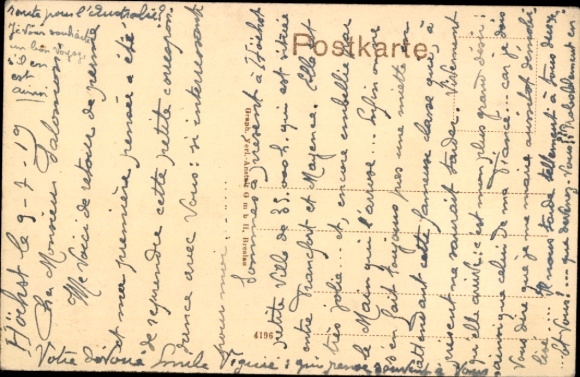 Postkarte
Graph. Verl.-Anstalt G m b H, Breslau
4196
Höchst le 9-7-19
Cher Monsieur Salomon
Me Voici de retour de perme
et ma première pensée a été
de reprendre cette petite correspon
dance avec Vous: si interressante
pour moi
Sommes à présent à Höchst
petite Ville de 35.000 h, qui est située
entre Francfort et Mayence. Elle est
très jolie... et, encore embellie par
le Main qui l'arrose... Enfin on ne
s'en fait toujours pas une miette en
attendant cette fameuse classe qui, à
présent ne saurait tarder. Vivement
qu'elle arrive: c'est mon plus grand désir:
ainsi que celui de ma France... car je dois
Vous dire que je me marie aussitôt démobi
lisé... Il nous tarde tellement à tous deux.
Et Vous!... que devenez-Vous? Probablement en
route pour l'Australie!
Je Vous souhaite
un bon Voyage
s'il en
est
ainsi!
Votre dévoué Emile Viguié: qui pense souvent à Vous